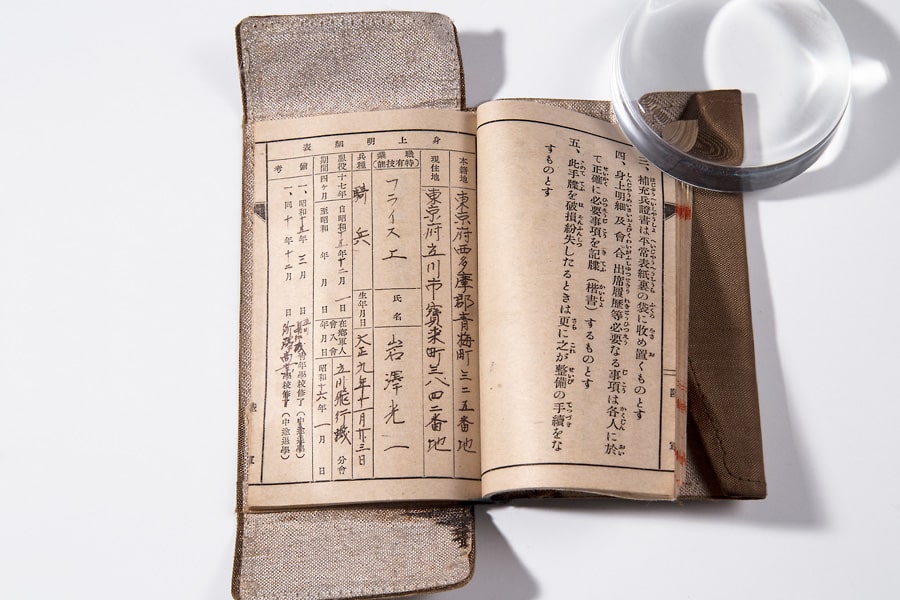 三、補充兵證書は平常表紙裏の袋に收め置くものとす
四、身上明細及會合出席履歷等必要なる事項は各人に於
て正確に必要事項を記牒(楷書)するものとす
五、此手牒を破損紛失したるときは更に之が整備の手續をな
すものとす
身上明細表
本籍地 東京府西多摩郡青梅町三二五番地
現住地 東京府立川市
職業(特有技能) フライス工
氏名 岩澤光一
兵種 騎兵
生年月日 大正九年十一月廿三日
服役期間 十七年四ヶ月
自昭和 年十二月一日
至昭和 年 月 日
在鄉軍人會入會年月日
立川飛行機分會
昭和十六年一月 日
備考
一、昭和 年三月 日 青年學校修了(中途退學)
一、同十 年十二月 日 學校修了(中途退學)